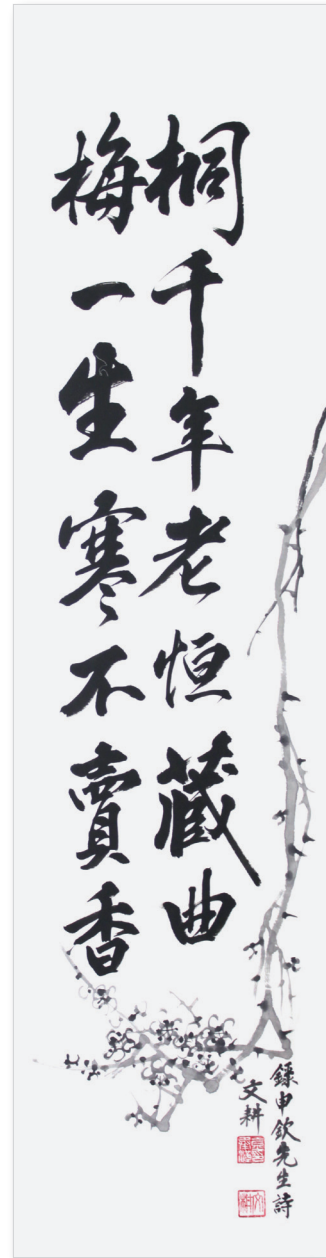 桐千年老恒藏曲
梅一生寒不賣香
錄申欽先生詩
文耕